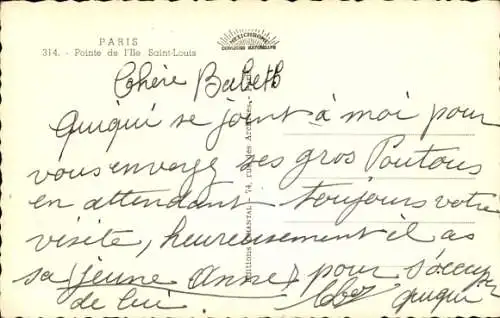 PARIS
314. - Pointe de l'Ile Saint-Louis
MEXICHROME
COULEURS NATURELLES
Chère Babeth
Quiqui se joint à moi pour
vous envoyer ses gros Poutous
en attendant toujours votre
visite, heureusement il a
sa (jeune Anne) pour s'occuper
de lui.
Quiqui
CHANTAL - 74, rue des Archives